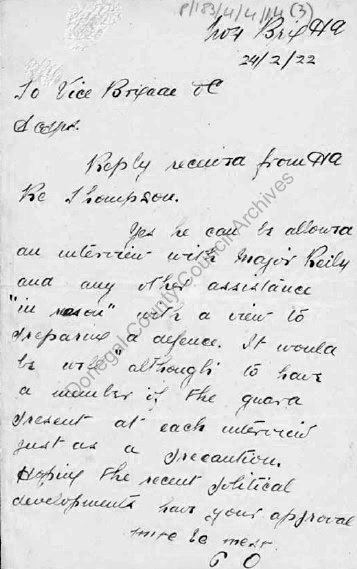 P/183/4/4/14 (3)
No 4 Brig HQ
24/2/22
To Vice Brigade OC
Reply received from HQ
Re Thompson.
Yes he can be allowed
an interview with Major Reily
and any other assistance
"in reason" with a view to
preparing a defence. It would
be well although to have
a member of the guard
present at each interview
just as a precaution.
Hoping the recent political
developments have your approval
more to next.
Donegal County Council Archives